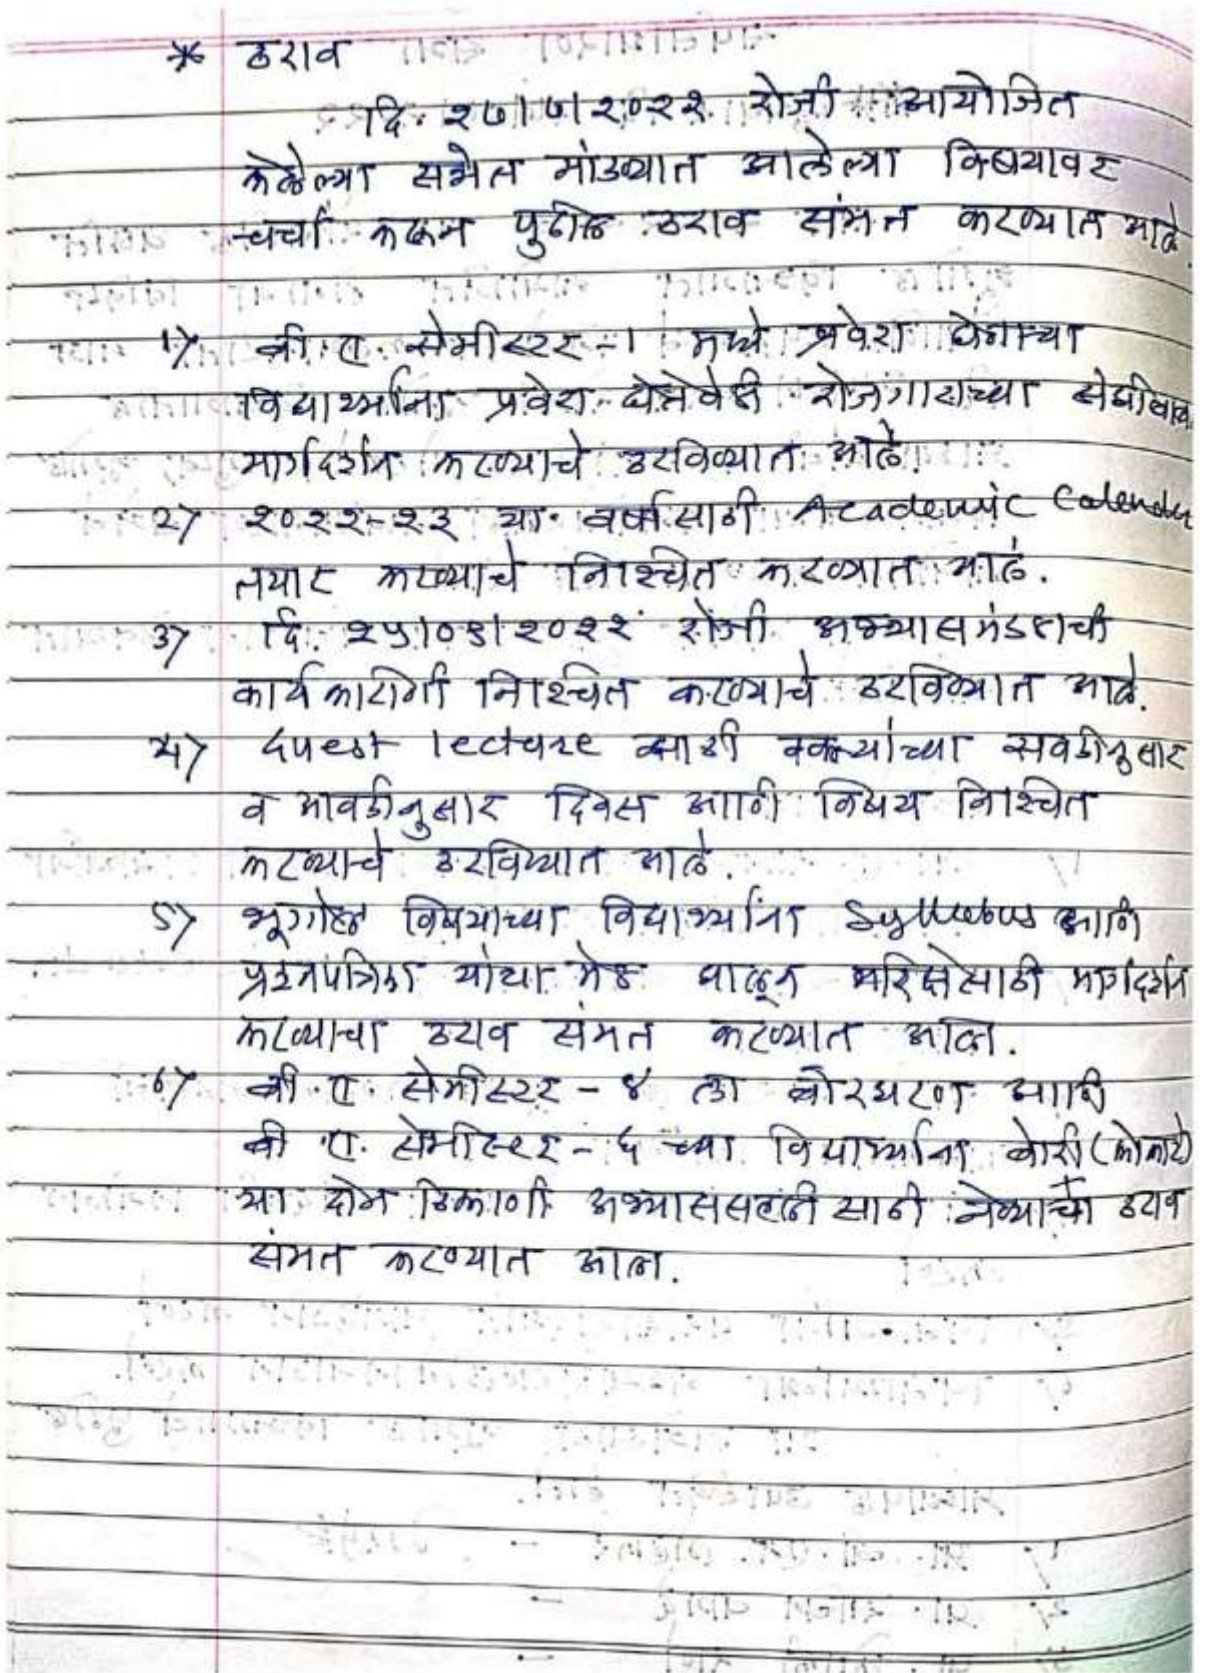 * ठराव
दि. २७।७।२०२२ रोजी आयोजित
केलेल्या सभेत मांडण्यात आलेल्या विषयावर
चर्चा करून पुढील ठराव संमत करण्यात आले.
1) बी.ए. सेमीस्टर-1 मध्ये प्रवेश घेणाऱ्या
विद्यार्थ्यांना प्रवेश घेतेवेळी रोजगाराच्या संधीबाबत
मार्गदर्शन करण्याचे ठरविण्यात आले.
2) २०२२-२३ या वर्षासाठी Academic Calender
तयार करण्याचे निश्चित करण्यात आले.
3) दि. २५।०९।२०२२ रोजी अभ्यासमंडळाची
कार्यकारीणी निश्चित करण्याचे ठरविण्यात आले.
4) Guest lecture साठी वक्त्यांच्या सवडीनुसार
व आवडीनुसार दिवस आणि विषय निश्चित
करण्याचे ठरविण्यात आले.
5) भूगोल विषयाच्या विद्यार्थ्यांना Syllabus आणि
प्रश्नपत्रिका यांचा मेळ घालून परिक्षेसाठी मार्गदर्शन
करण्याचा ठराव संमत करण्यात आला.
6) बी.ए. सेमीस्टर - ४ ला बोरधरण आणि
बी.ए. सेमीस्टर - ६ च्या विद्यार्थ्यांना बोरी (कोकाटे)
या दोन ठिकाणी अभ्याससहली साठी नेण्याचा ठराव
संमत करण्यात आला.